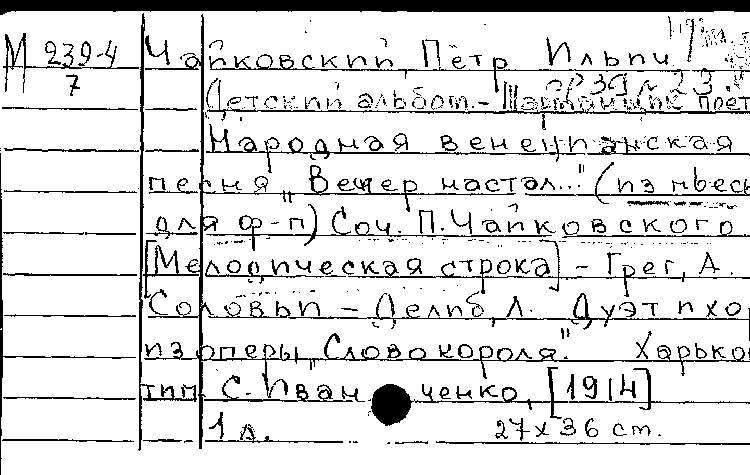 М 239-4 Чайковский, Пётр Ильич
7 ор 39 № 23.
Детский альбом. - Шарманщик поет
Народная венецианская
песня „Вечер настал..." (из пьес
для ф-п) Соч. П. Чайковского.
[Мелодическая строка] - Грег, А.
Соловьи - Делиб, Л. Дуэт и хор
из оперы „Слово короля". Харьков
тип. С. Иванченко, [1914]
1 л. 27 x 36 cm.